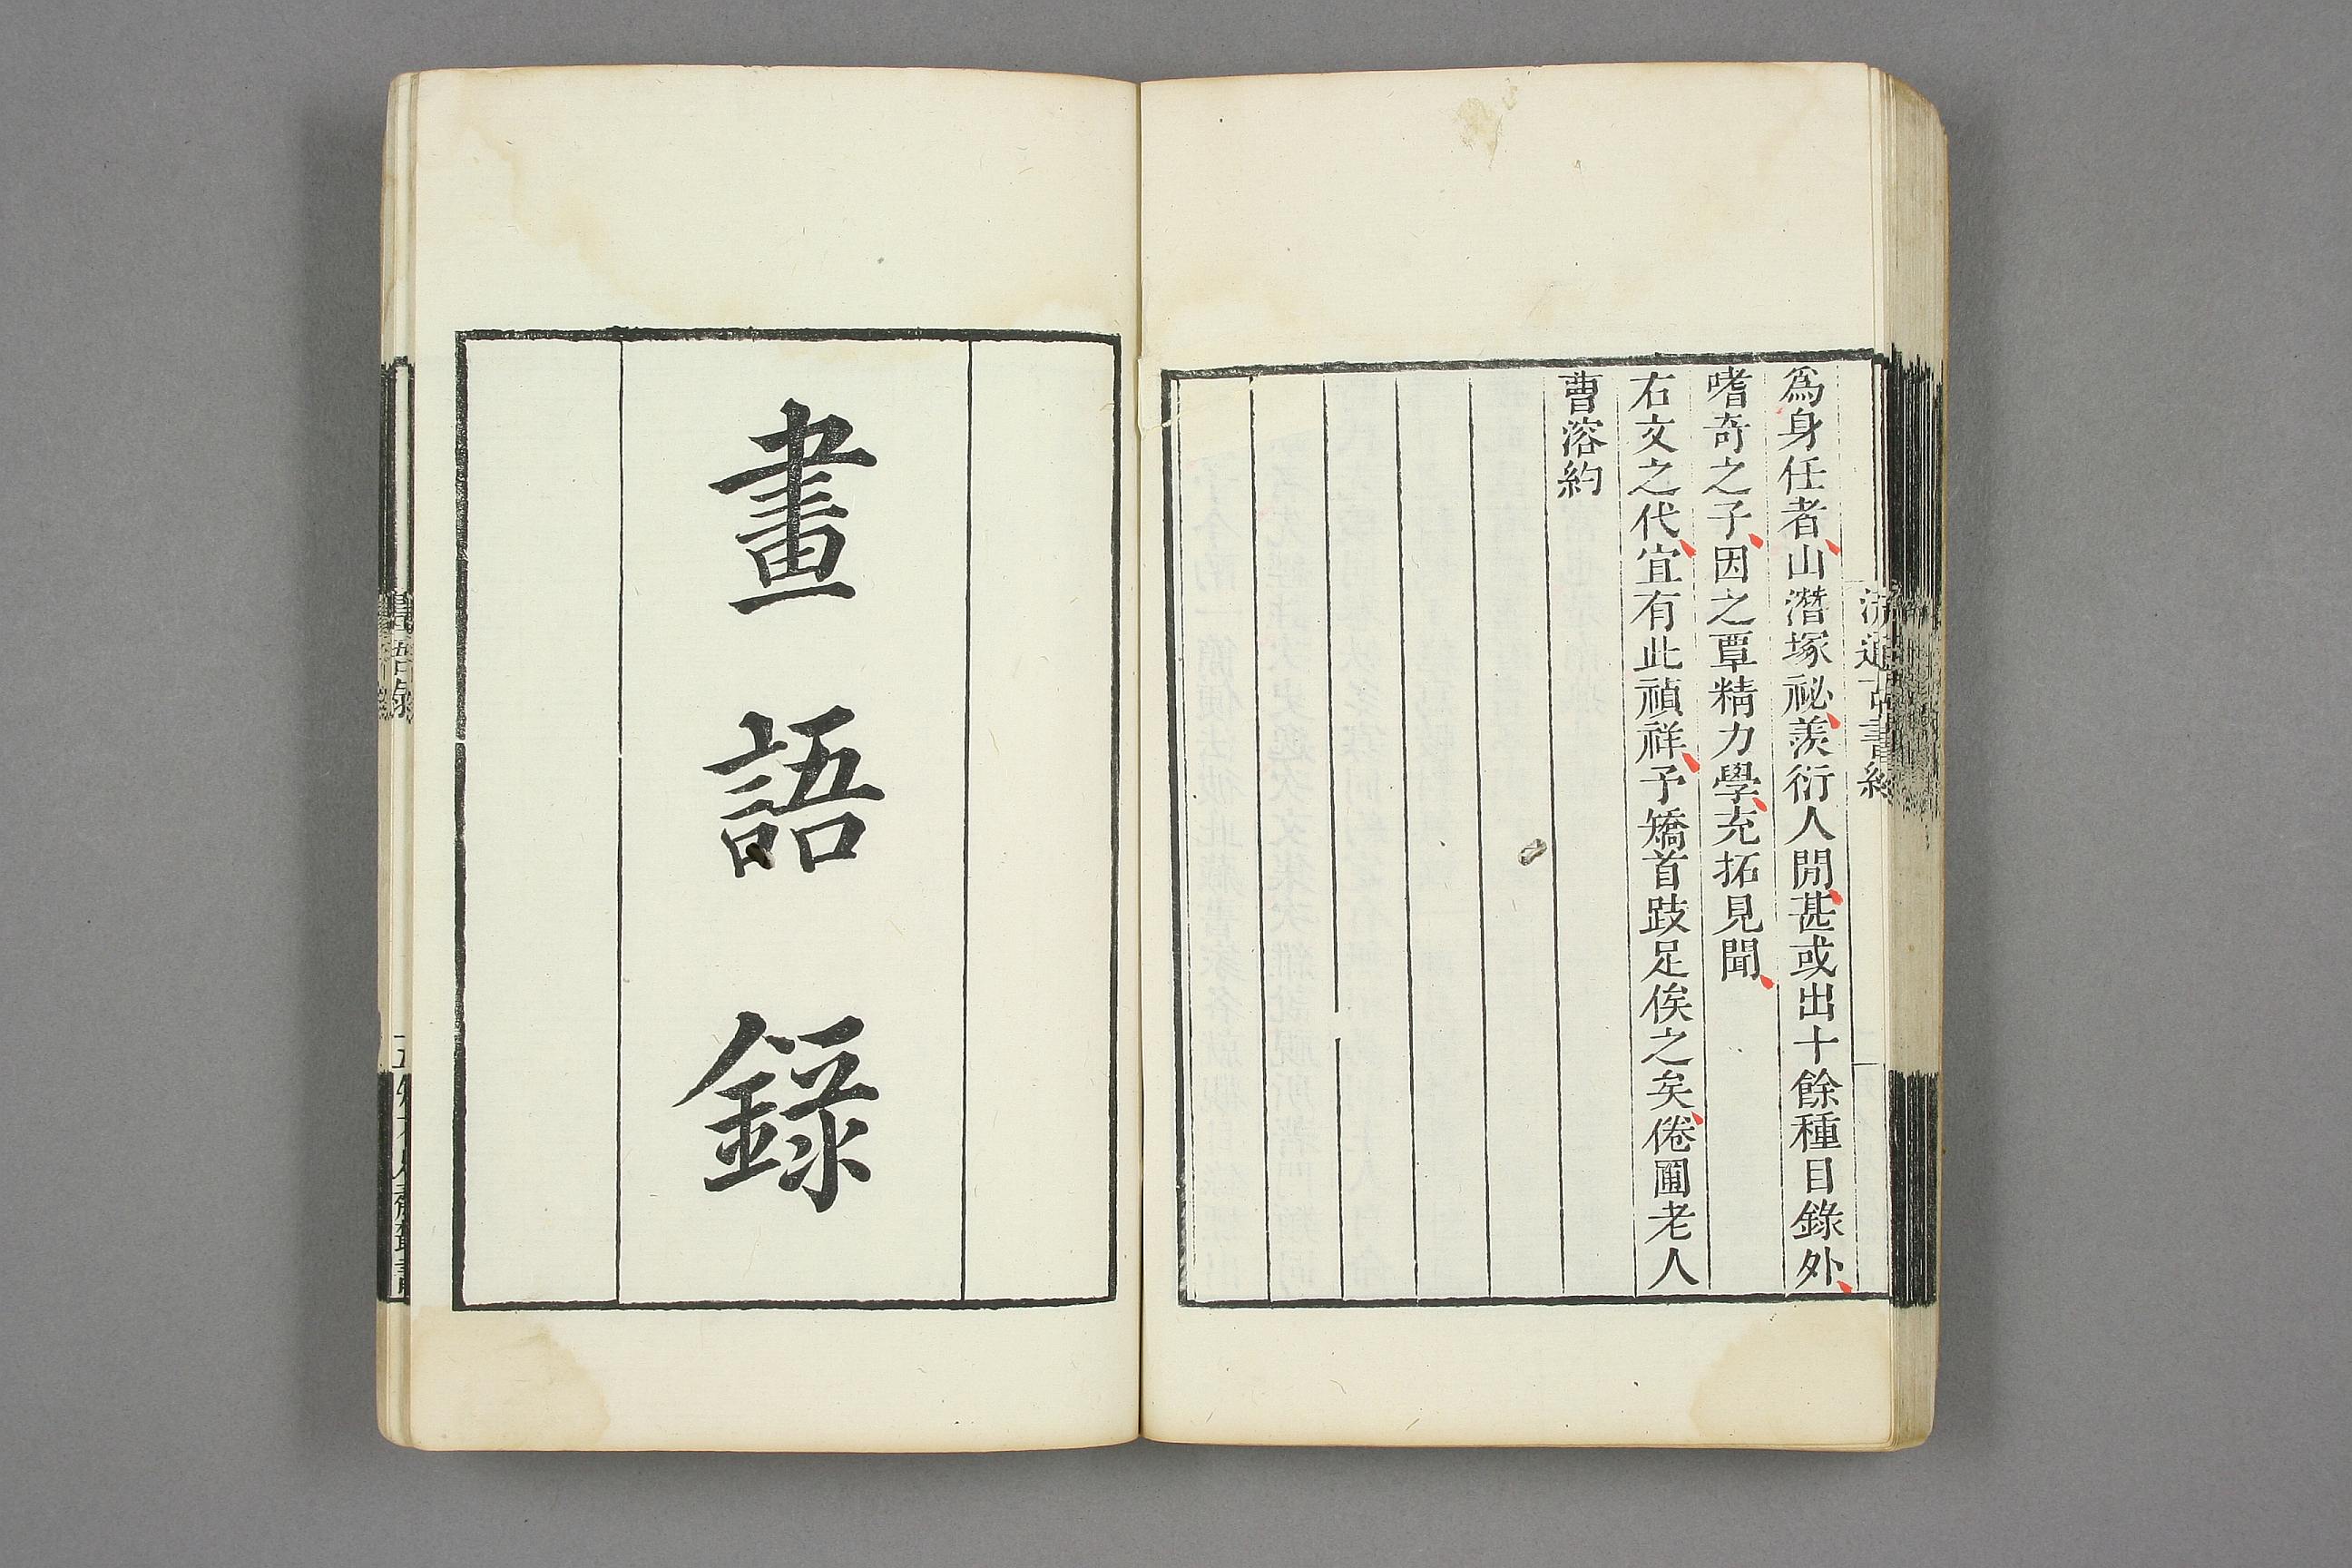 爲身任者山潛塚祕羨衍人閒甚或出十餘種目錄外
嗜奇之子因之覃精力學充拓見聞
右文之代宜有此禎祥予矯首跂足俟之矣倦圃老人
曹溶約
流通古書約
畫語錄
畫語錄